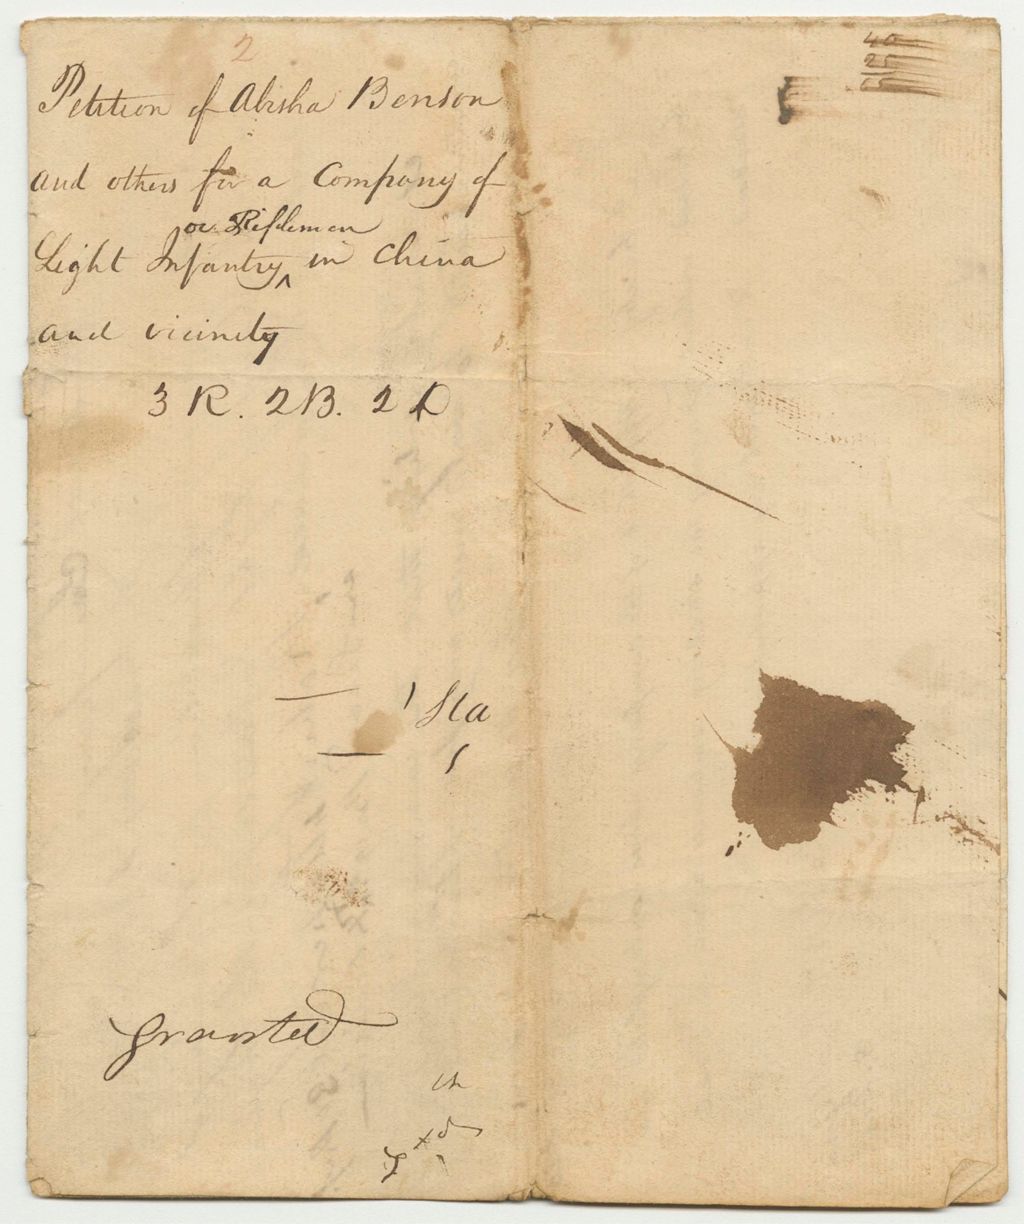 2
Petition of Abisha Benson
and others for a Company of
or Riflemen
Light Infantry ^ in China
and vicinity
3 R. 2 B. 2 D
Granted